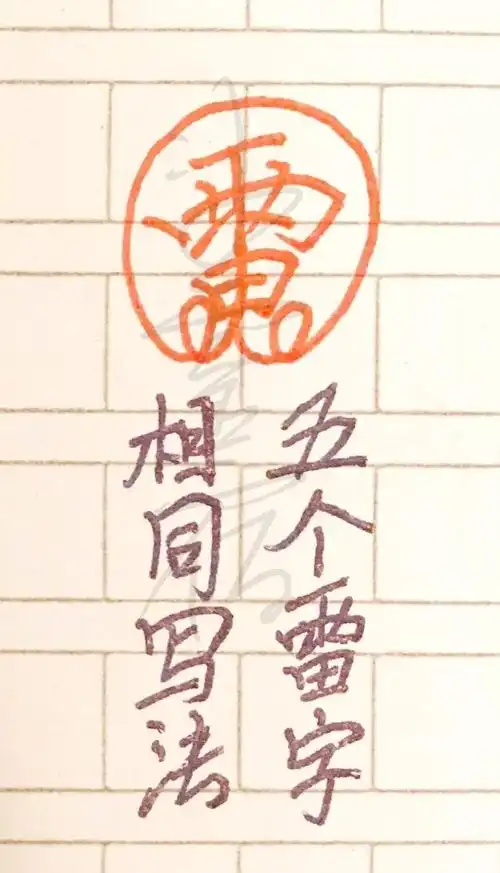 雷
五个雷字
相同写法